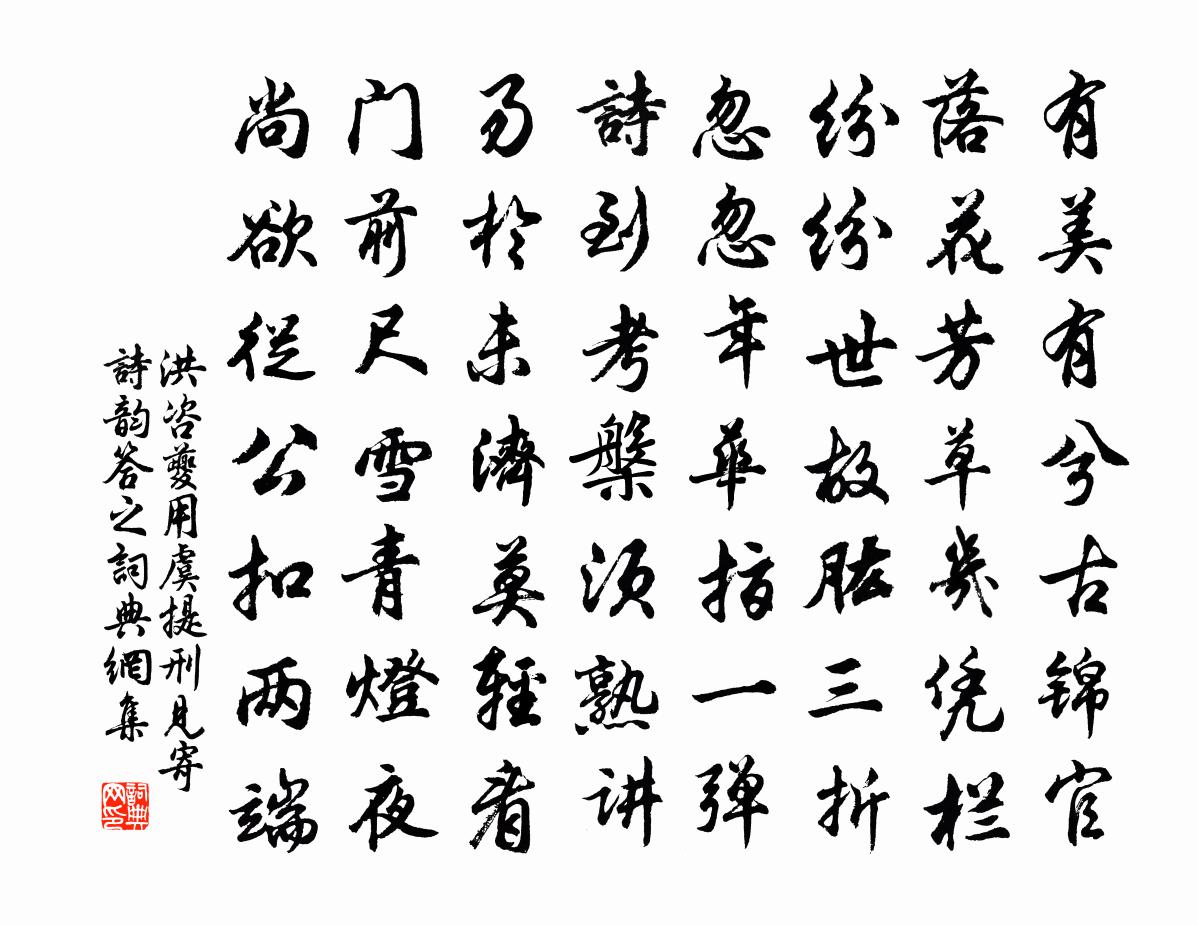 有美有兮古锦官
落花芳草几凭栏
纷纷世故肱三折
忽忽年华指一弹
詩到考槃须熟讲
易於未濟莫輕看
门前尺雪青燈夜
尚欲從公扣两端
洪咨夔用虞提刑見寄
詩韵答之詞典網集
詞典网印